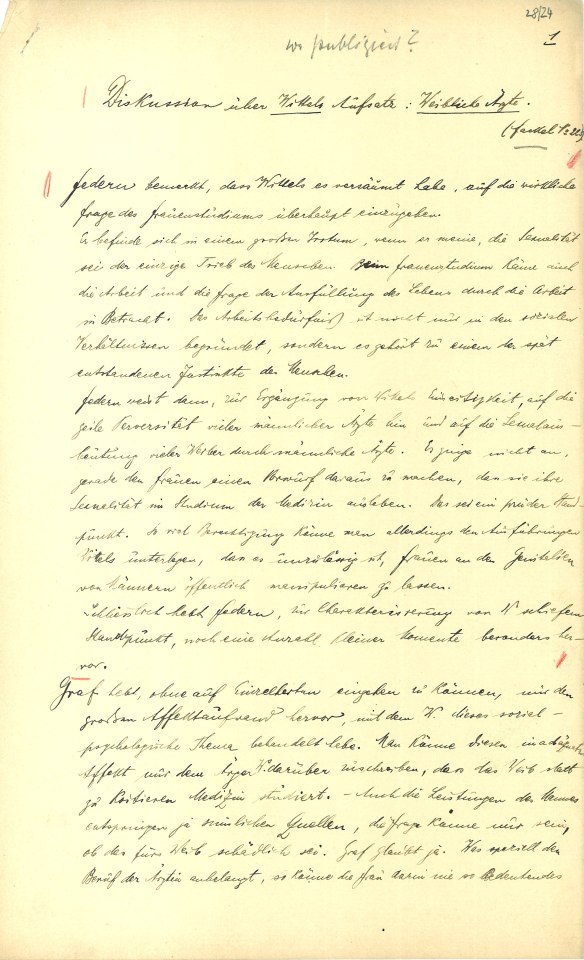 28/24
wo publiziert?
1
Diskussion über Wittels Aufsatz: Weibliche Ärzte.
(Fackel No 225)
Federn bemerkt, dass Wittels es versäumt habe, auf die wirkliche
Frage des Frauenstudiums überhaupt einzugehen.
Er befinde sich in einem großen Irrtum, wenn er meine, die Sexualität
sei der einzige Trieb des Menschen. Beim Frauenstudium käme auch
die Arbeit und die Frage der Ausfüllung des Lebens durch die Arbeit
in Betracht. Das Arbeitsbedürfniß ist nicht nur in den socialen
Verhältnissen begründet, sondern es gehört zu einem der spät
entstandenen Instinkte des Menschen.
Federn weist dann, zur Ergänzung von Wittels Einseitigkeit, auf die
geile Perversität vieler männlicher Ärzte hin und auf die Sexualaus-
beutung vieler Weiber durch männliche Ärzte. Es ginge nicht an,
gerade den Frauen einen Vorwurf daraus zu machen, dass sie ihre
Sexualität im Studium der Medizin ausleben. Das sei ein prüder Stand-
punkt. So viel Berechtigung könne man allerdings den Ausführungen
Wittels unterlegen, dass es unzulässig ist, Frauen an den Genitalien
von Männern öffentlich manipulieren zu lassen.
Schliesslich hebt Federn, zur Charakterisierung von W schiefem
Standpunkt, noch eine Anzahl kleiner Momente besonders her-
vor.
Graf hebt, ohne auf Einzelheiten eingehen zu können, nur den
großen Affektaufwand hervor, mit dem W. dieses sozial-
psychologische Thema behandelt habe. Man könne diesen inadäquaten
Affekt nur dem Ärger W. darüber zuschreiben, dass das Weib statt
zu koitieren Medizin studiert. – Auch die Leistungen des Mannes
entspringen ja sinnlichen Quellen, die Frage könne nur sein,
ob das fürs Weib schädlich sei. Graf glaubt ja. Was speziell den
Beruf der Ärztin anbelangt, so könne die Frau darin nie so Bedeutendes